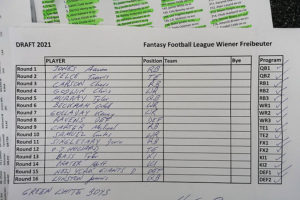 DRAFT 2021 Fantasy Football League Wiener Freibeuter
PLAYER Position Team Bye Program
Round 1 JONES Aaron RB QB1
Round 2 KELCE Travis TE QB2
Round 3 CARSON Chris RB RB1
Round 4 GODWIN Chris WR RB2
Round 5 MURRAY Kyler QB RB3
Round 6 WR WR1
Round 7 GOLLADAY Kenny WR WR2
Round 8 RAVENS DEF WR3
Round 9 CARTER Michael RB TE1
Round 10 SAMUEL WR TE2
Round 11 SINGLETARY RB FX1
Round 12 TE FX2
Round 13 BASS Tyler KI KI1
Round 14 KI KI2
Round 15 NEW YORK GIANTS DEF DEF1
Round 16 DEF2
GREEN WHITE BOYS